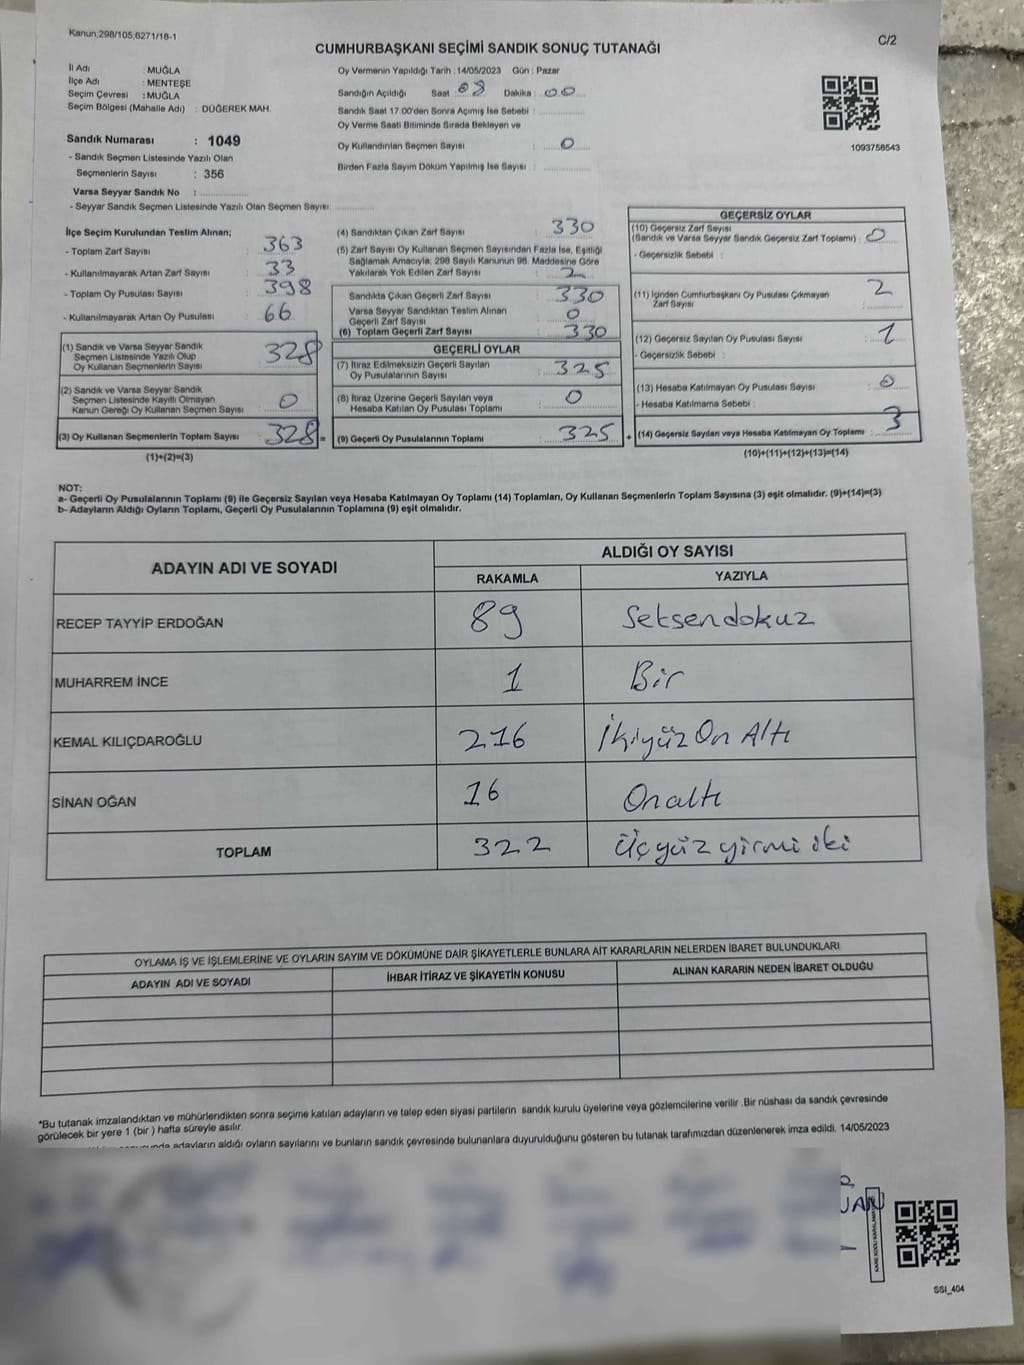 Kanun;298/105,6271/18-1
CUMHURBAŞKANI SEÇİMİ SANDIK SONUÇ TUTANAĞI
C/2
İl Adı : MUĞLA
İlçe Adı : MENTEŞE
Seçim Çevresi : MUĞLA
Seçim Bölgesi (Mahalle Adı) : DÜĞEREK MAH.
Sandık Numarası : 1049
- Sandık Seçmen Listesinde Yazılı Olan
Seçmenlerin Sayısı : 356
Varsa Seyyar Sandık No :
- Seyyar Sandık Seçmen Listesinde Yazılı Olan Seçmen Sayısı:
Oy Vermenin Yapıldığı Tarih :14/05/2023 Gün : Pazar
Sandığın Açıldığı Saat : 08 Dakika : 00
Sandık Saat 17:00'den Sonra Açımış İse Sebebi :
Oy Verme Saati Bitiminde Sırada Bekleyen ve
Oy Kullandırılan Seçmen Sayısı : 0
Birden Fazla Sayım Döküm Yapılmış İse Sayısı :
1093758543
İlçe Seçim Kurulundan Teslim Alınan;
- Toplam Zarf Sayısı : 363
- Kullanılmayarak Artan Zarf Sayısı : 33
- Toplam Oy Pusulası Sayısı : 398
- Kullanılmayarak Artan Oy Pusulası : 66
(1) Sandık ve Varsa Seyyar Sandık
Seçmen Listesinde Yazılı Olup
Oy Kullanan Seçmenlerin Sayısı : 328
(2) Sandık ve Varsa Seyyar Sandık
Seçmen Listesinde Kayıtlı Olmayan
Kanun Gereği Oy Kullanan Seçmen Sayısı : 0
(3) Oy Kullanan Seçmenlerin Toplam Sayısı : 328 =
(1)+(2)=(3)
(4) Sandıktan Çıkan Zarf Sayısı : 330
(5) Zarf Sayısı Oy Kullanan Seçmen Sayısından Fazla İse, Eşitliği
Sağlamak Amacıyla, 298 Sayılı Kanunun 98. Maddesine Göre
Yakılarak Yok Edilen Zarf Sayısı : 2
Sandıkta Çıkan Geçerli Zarf Sayısı : 330
Varsa Seyyar Sandıktan Teslim Alınan
Geçerli Zarf Sayısı : 0
(6) Toplam Geçerli Zarf Sayısı : 330
GEÇERLİ OYLAR
(7) İtiraz Edilmeksizin Geçerli Sayılan
Oy Pusulalarının Sayısı : 325
(8) İtiraz Üzerine Geçerli Sayılan veya
Hesaba Katılan Oy Pusulası Toplamı : 0
(9) Geçerli Oy Pusulalarının Toplamı : 325 +
GEÇERSİZ OYLAR
(10) Geçersiz Zarf Sayısı
(Sandık ve Varsa Seyyar Sandık Geçersiz Zarf Toplamı) : 0
- Geçersizlik Sebebi :
(11) İçinden Cumhurbaşkanı Oy Pusulası Çıkmayan
Zarf Sayısı : 2
(12) Geçersiz Sayılan Oy Pusulası Sayısı : 1
- Geçersizlik Sebebi :
(13) Hesaba Katılmayan Oy Pusulası Sayısı : 0
- Hesaba Katılmama Sebebi :
(14) Geçersiz Sayılan veya Hesaba Katılmayan Oy Toplamı : 3
(10)+(11)+(12)+(13)=(14)
NOT:
a- Geçerli Oy Pusulalarının Toplamı (9) ile Geçersiz Sayılan veya Hesaba Katılmayan Oy Toplamı (14) Toplamları, Oy Kullanan Seçmenlerin Toplam Sayısına (3) eşit olmalıdır. (9)+(14)=(3)
b- Adayların Aldığı Oyların Toplamı, Geçerli Oy Pusulalarının Toplamına (9) eşit olmalıdır.
ADAYIN ADI VE SOYADI
ALDIĞI OY SAYISI
RAKAMLA YAZIYLA
RECEP TAYYİP ERDOĞAN 89 Seksendokuz
MUHARREM İNCE 1 Bir
KEMAL KILIÇDAROĞLU 216 İkiyüz On Altı
SİNAN OĞAN 16 Onaltı
TOPLAM 322 Üçyüz yirmi iki
OYLAMA İŞ VE İŞLEMLERİNE VE OYLARIN SAYIM VE DÖKÜMÜNE DAİR ŞİKAYETLERLE BUNLARA AİT KARARLARIN NELERDEN İBARET BULUNDUKLARI
ADAYIN ADI VE SOYADI İHBAR İTİRAZ VE ŞİKAYETİN KONUSU ALINAN KARARIN NEDEN İBARET OLDUĞU
*Bu tutanak imzalandıktan ve mühürlendikten sonra seçime katılan adayların ve talep eden siyasi partilerin sandık kurulu üyelerine veya gözlemcilerine verilir .Bir nüshası da sandık çevresinde
görülecek bir yere 1 (bir ) hafta süreyle asılır.
adayların aldığı oyların sayılarını ve bunların sandık çevresinde bulunanlara duyurulduğunu gösteren bu tutanak tarafımızdan düzenlenerek imza edildi. 14/05/2023
SSI_404